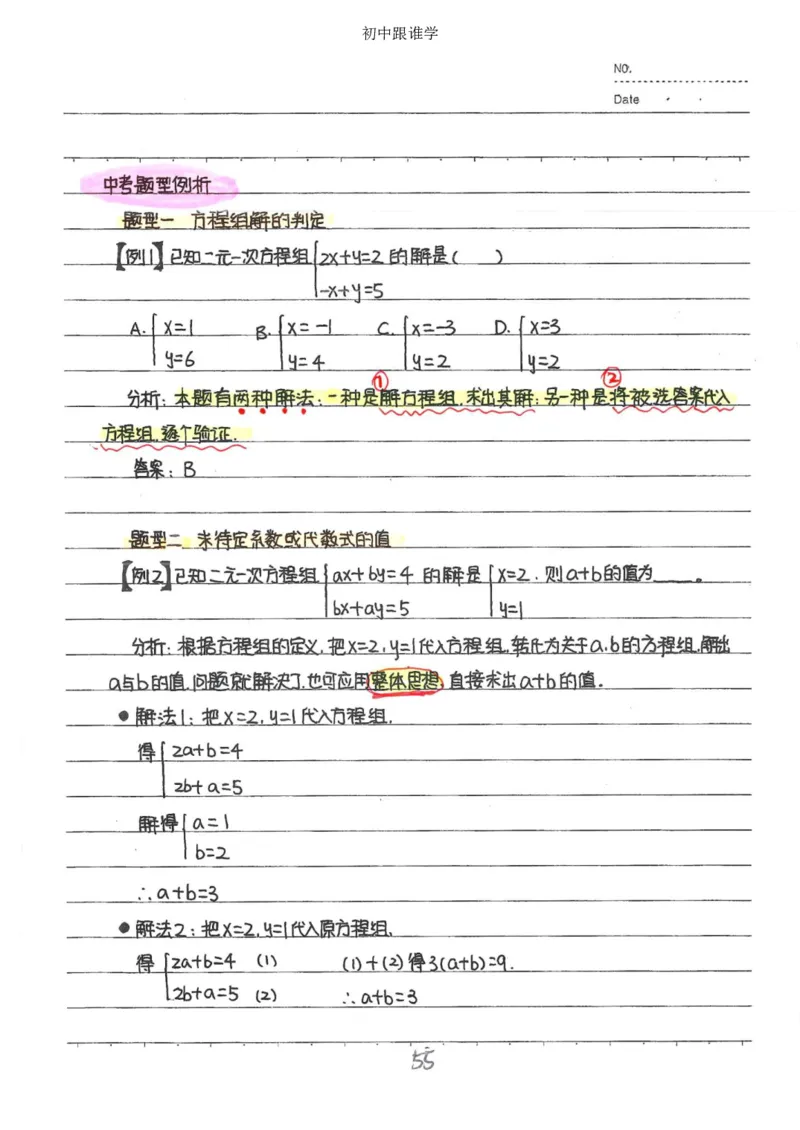 初中跟谁学
NO.
Date
中考题型例析
题型一 方程组解的判定
【例1】已知二元一次方程组{2x+y=2 的解是( )
-x+y=5
A.{x=1 B.{x=-1 C.{x=-3 D.{x=3
y=6 y=4 y=2 y=2
① ②
分析:本题有两种解法:一种是解方程组,求出其解;另一种是将被选答案代入
方程组,逐个验证.
答案:B
题型二 求待定系数或代数式的值
【例2】已知二元一次方程组{ax+by=4 的解是{x=2.则a+b的值为____。
bx+ay=5 y=1
分析:根据方程组的定义,把x=2,y=1代入方程组,转化为关于a,b的方程组,解出
a与b的值,问题就解决了,也可应用整体思想,直接求出a+b的值.
●解法1:把x=2,y=1代入方程组,
得{2a+b=4
2b+a=5
解得{a=1
b=2
∴a+b=3
●解法2:把x=2,y=1代入原方程组,
得{2a+b=4 (1) (1)+(2)得3(a+b)=9.
2b+a=5 (2) ∴a+b=3
55